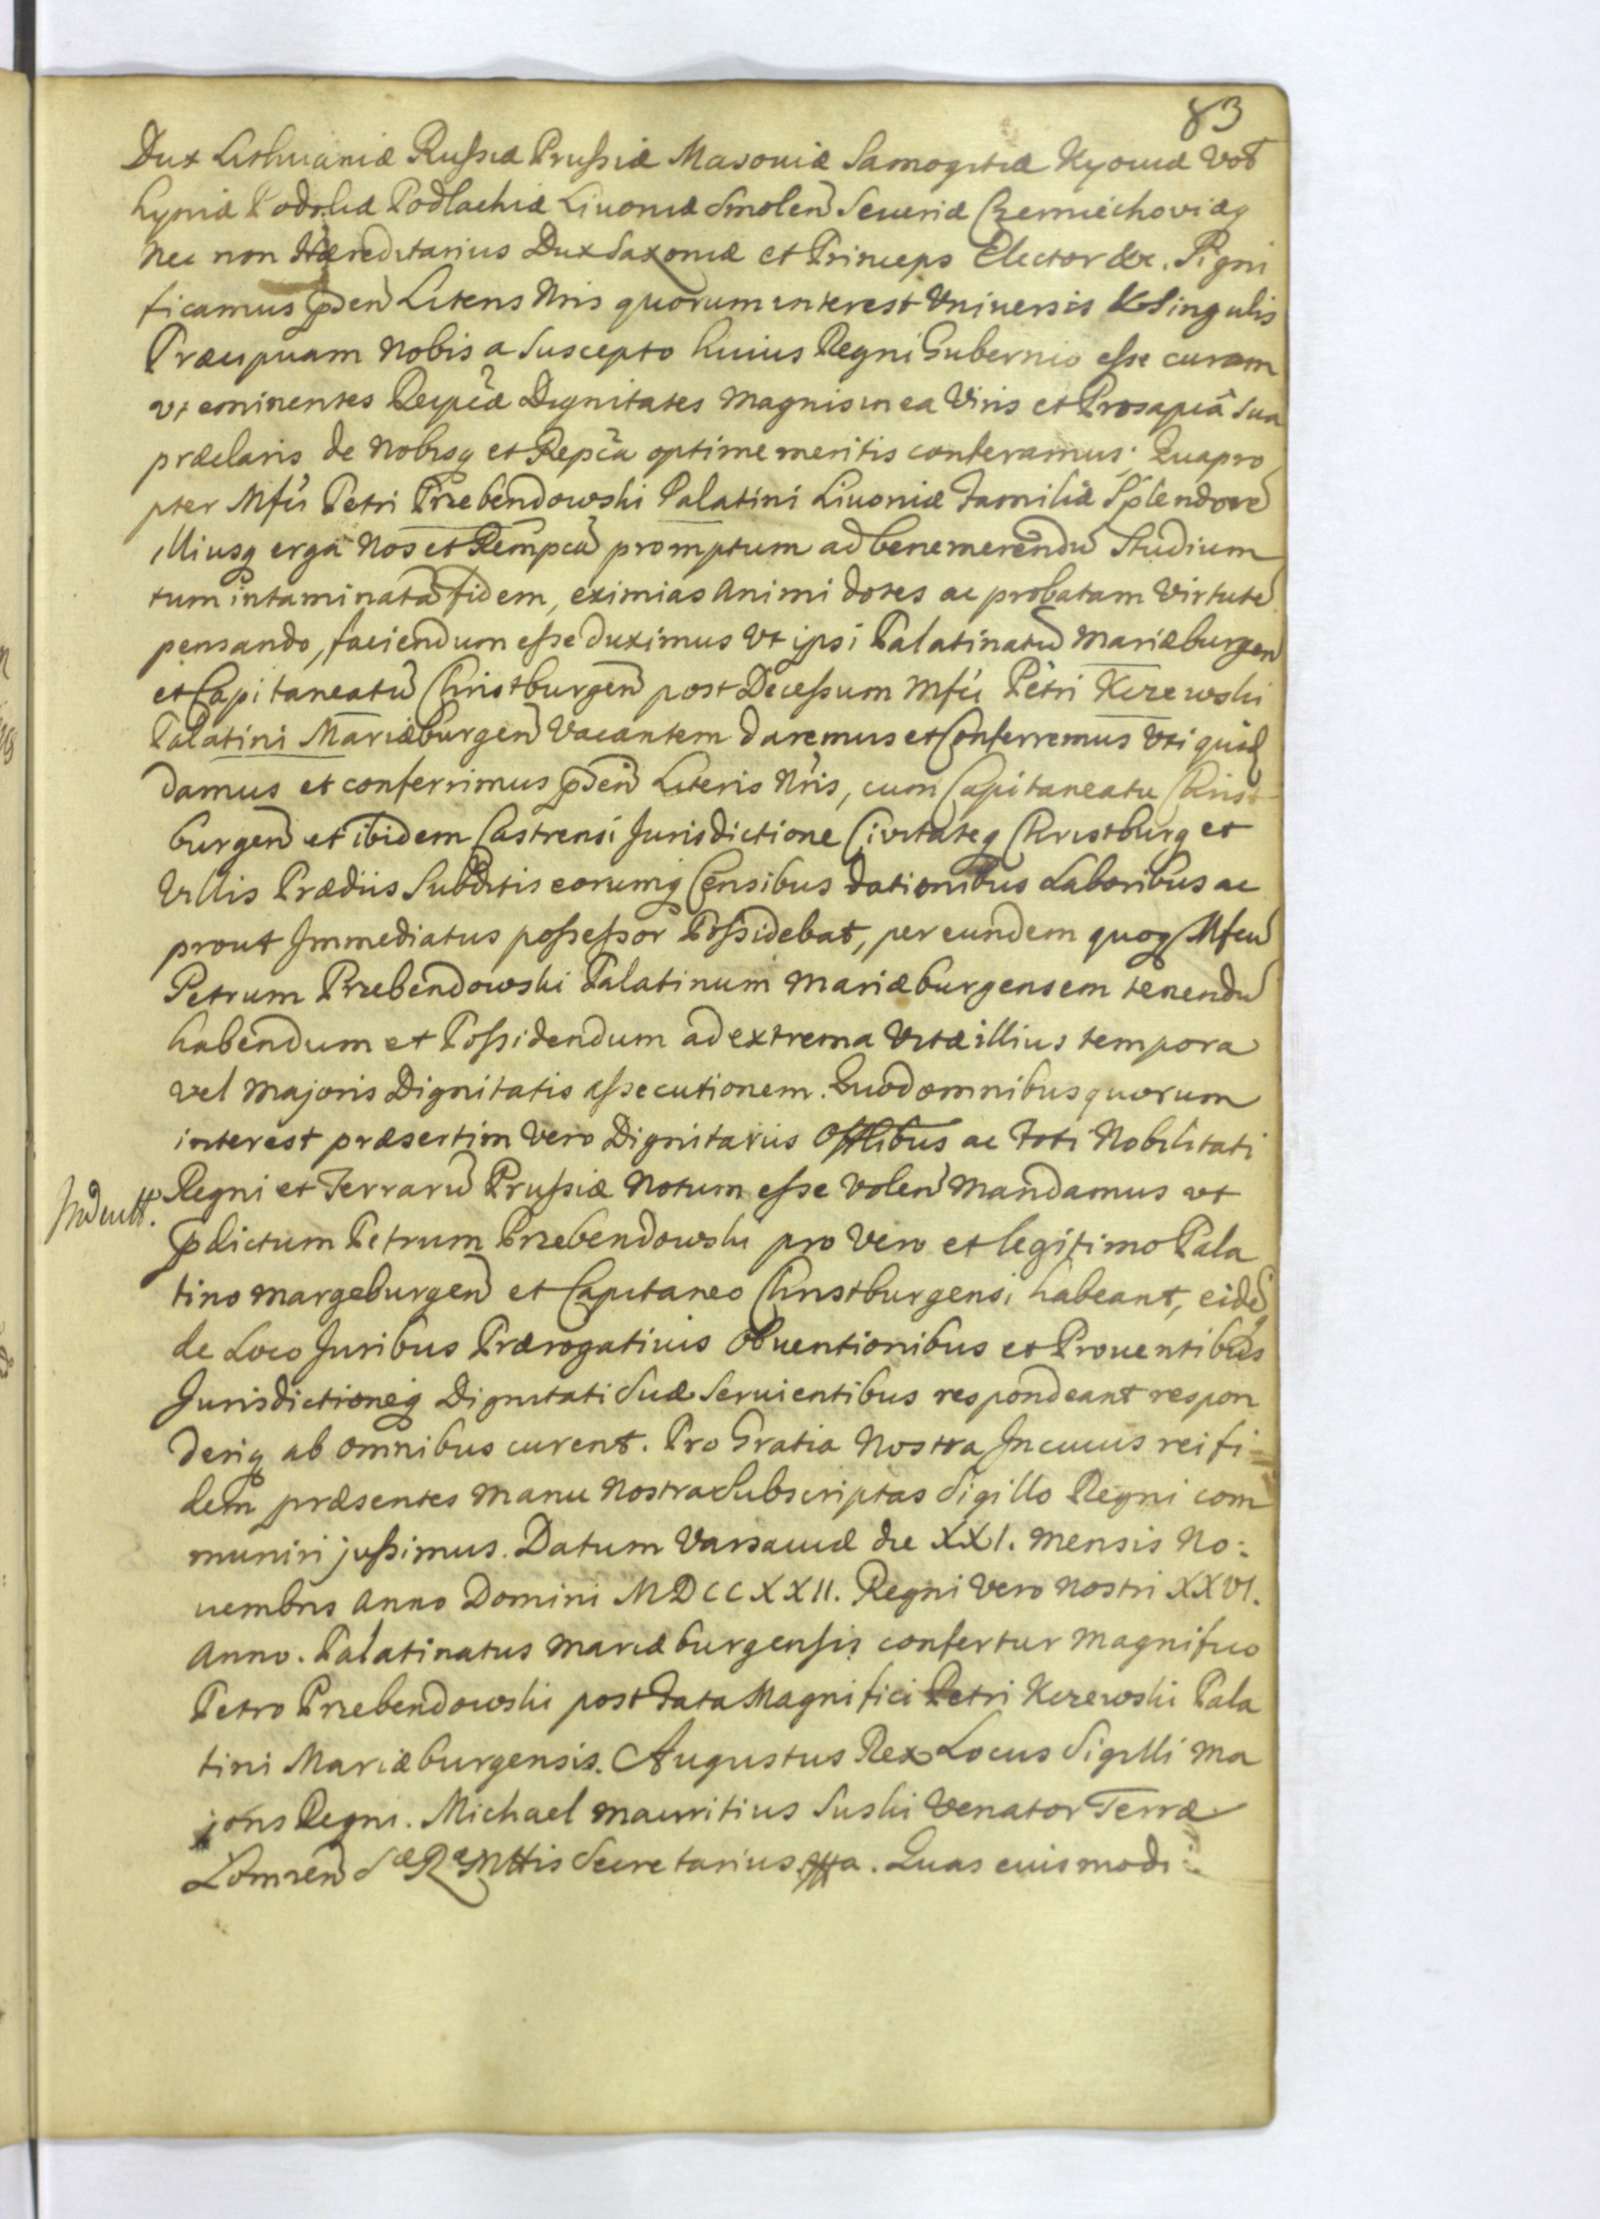 83
Dux Lithuaniæ Russiæ Prussiæ Masouiæ Samogitiæ Kyouiæ Vol
hyniæ Podoliæ Podlachiæ Liuoniæ Smolen Seueriæ Czerniechoviæq
Nec non Hæreditarius Dux Saxoniæ et Princeps Elector &c. Signi
ficamus pden Literis Nris quorum interest Vniuersis & Singulis
Præcipuam Nobis a suscepto huius Regni Gubernio esse curam
vt eminentes Reipcæ Dignitates Magnis in ea Viris et Prosapiâ sua
præclaris de Nobisq et Repca optime meritis conferamus; Quapro
pter Mfci Petri Przebendowski Palatini Liuoniæ Familiæ Splendore
illiusq erga Nos et Rempca promptum ad benemerendu Studium
tum intaminata fidem, eximias Animi dotes ac probatam Virtute
pensando, faciendum esse duximus Vt ipsi Palatinatu Mariæburgen
et Capitaneatu Christburgen post Decessum Mfci Petri Kczewski
Palatini Mariæburgen Vacantem daremus et Conferremus Vti quidq
damus et conferrimus pden Literis Nris, cum Capitaneatu Christ
burgen et ibidem Castrensi Jurisdictione Civitateq Christburg et
Villis Prædiis Subditis eorumq Censibus dationibus Laboribus ac
prout Immediatus possessor Possidebat, per eundem quoq Mfcu
Petrum Przebendowski Palatinum Mariæburgensem tenendu
habendum et Possidendum ad extrema Vitæ illius tempora
vel Majoris Dignitatis assecutionem. Quod omnibus quorum
interest præsertim vero Dignitariis Offlibus ac Toti Nobilitati
Regni et Terraru Prussiæ Notum esse Volen Mandamus vt
pdictum Petrum Przebendowski pro Vero et legitimo Pala
tino Margeburgen et Capitaneo Christburgensi habeant, eide
de Loco Juribus Prærogatiuis Obuentionibus et Prouentibus
Jurisdictioneq Dignitati Suæ Seruientibus respondeant respon
deriq ab omnibus curent. Pro Gratia Nostra In cuius rei fi=
dem præsentes Manu Nostra Subscriptas Sigillo Regni com
muniri jussimus. Datum Varsauiæ die XXI. Mensis No:
uembris Anno Domini MDCCXXII. Regni Vero Nostri XXVI.
Anno. Palatinatus Mariæburgensis confertur Magnifico
Petro Przebendowski post Fata Magnifici Petri Kczewski Pala
tini Mariæburgensis. Augustus Rex Locus Sigilli Ma
joris Regni. Michael Mauritius Suski Venator Terræ
Lomzen Sæ Ræ Mttis Secretarius. Quas eiusmodi